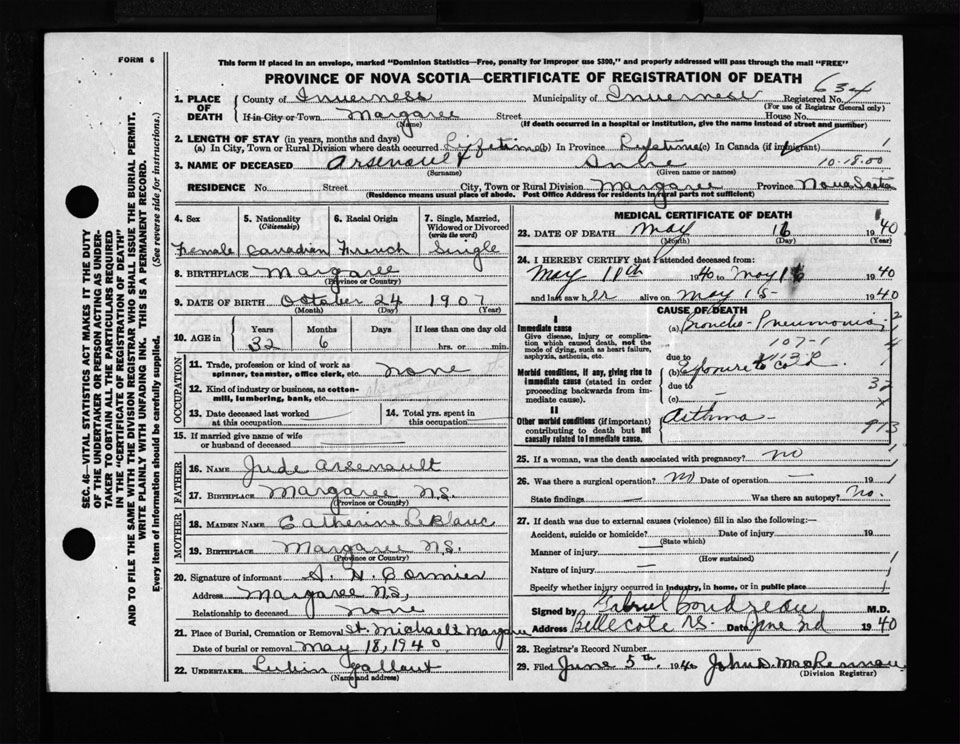 FORM 6
This form if placed in an envelope, marked "Dominion Statistics—Free, penalty for improper use $300," and properly addressed will pass through the mail "FREE"
PROVINCE OF NOVA SCOTIA—CERTIFICATE OF REGISTRATION OF DEATH
634
1. PLACE OF DEATH County of Inverness Municipality of Inverness Registered No.
(For use of Registrar General only)
If in City or Town Margaree Street House No.
(Name) (If death occurred in a hospital or institution, give the name instead of street and number)
2. LENGTH OF STAY (in years, months and days)
(a) In City, Town or Rural Division where death occurred Lifetime (b) In Province Lifetime (c) In Canada (if immigrant)
3. NAME OF DECEASED Arsenault 10-18.00
(Surname) (Given name or names)
RESIDENCE No. Street City, Town or Rural Division Margaree Province Nova Scotia
(Residence means usual place of abode. Post Office Address for residents in rural parts not sufficient)
SEC. 46—VITAL STATISTICS ACT MAKES IT THE DUTY
OF THE UNDERTAKER OR PERSON ACTING AS UNDER-
TAKER TO OBTAIN ALL THE PARTICULARS REQUIRED
IN THE "CERTIFICATE OF REGISTRATION OF DEATH"
AND TO FILE THE SAME WITH THE DIVISION REGISTRAR WHO SHALL ISSUE THE BURIAL PERMIT.
WRITE PLAINLY WITH UNFADING INK. THIS IS A PERMANENT RECORD.
Every item of information should be carefully supplied. (See reverse side for instructions.)
4. Sex 5. Nationality (Citizenship) 6. Racial Origin 7. Single, Married, Widowed or Divorced (write the word)
Female Canadian French Single
8. BIRTHPLACE Margaree
(Province or Country)
9. DATE OF BIRTH October 24 1907
(Month) (Day) (Year)
10. AGE in Years Months Days If less than one day old
32 6 hrs. or min.
OCCUPATION
11. Trade, profession or kind of work as spinner, teamster, office clerk, etc. none
12. Kind of industry or business, as cotton-mill, lumbering, bank, etc.
13. Date deceased last worked at this occupation 14. Total yrs. spent in this occupation
15. If married give name of wife or husband of deceased
FATHER
16. NAME Jude Arsenault
17. BIRTHPLACE Margaree N.S.
(Province or Country)
MOTHER
18. MAIDEN NAME Catherine LeBlanc
19. BIRTHPLACE Margaree N.S.
(Province or Country)
20. Signature of informant Cormier
Address Margaree N.S,
Relationship to deceased none
21. Place of Burial, Cremation or Removal St. Michael's Margaree
Date of burial or removal May 18, 1940.
22. UNDERTAKER Lubin Gallant
(Name and address)
MEDICAL CERTIFICATE OF DEATH
23. DATE OF DEATH May 16 1940
(Month) (Day) (Year)
24. I HEREBY CERTIFY that I attended deceased from:
May 11th 1940 to May 16 1940
and last saw her alive on May 15- 1940
CAUSE OF DEATH
I
Immediate cause
Give disease, injury or complication which caused death, not the mode of dying, such as heart failure, asphyxia, asthenia, etc.
(a) Broncho-Pneumonia
107-1
due to
Morbid conditions, if any, giving rise to immediate cause (stated in order proceeding backwards from immediate cause).
(b) Exposure to cold.
due to 32
(c)
II
Other morbid conditions (if important) contributing to death but not causally related to immediate cause.
Asthma
25. If a woman, was the death associated with pregnancy? no
26. Was there a surgical operation? no Date of operation 19
State findings Was there an autopsy? no.
27. If death was due to external causes (violence) fill in also the following:—
Accident, suicide or homicide? Date of injury 19
(State which)
Manner of injury
(How sustained)
Nature of injury
Specify whether injury occurred in industry, in home, or in public place
Signed by Gabriel Boudreau M.D.
Address Belle Cote NS. Date June 2nd 1940
28. Registrar's Record Number
29. Filed June 5th, 1940 John D. MacLennan
(Division Registrar)